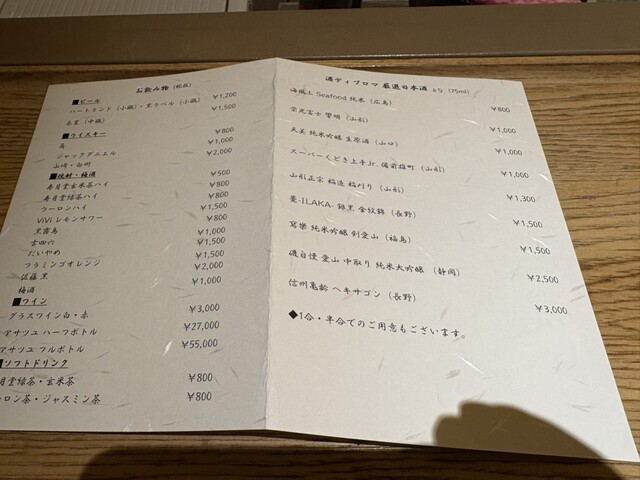 お飲み物 (税抜)
■ビール
ハートランド (小瓶)・黒ラベル (小瓶) ¥1,200
赤星 (中瓶) ¥1,500
■ウイスキー
¥800
ジャックダニエル ¥1,000
山崎・白州 ¥2,000
■焼酎・梅酒
寿月堂玄米茶ハイ ¥500
寿月堂緑茶ハイ ¥800
ウーロンハイ ¥800
ViVi レモンサワー ¥1,500
黒霧島 ¥800
吉四六 ¥1,000
だいやめ ¥1,500
フラミンゴオレンジ ¥1,500
佐藤 黒 ¥2,000
梅酒 ¥1,000
■ワイン
グラスワイン白・赤 ¥3,000
アサツユ ハーフボトル ¥27,000
アサツユ フルボトル ¥55,000
■ソフトドリンク
月堂緑茶・玄米茶 ¥800
ーロン茶・ジャスミン茶 ¥800
酒ディプロマ 厳選日本酒 (75ml)
海風土 Seafood 純米 (広島) ¥800
栄光冨士 (山形) ¥1,000
天美 純米吟醸 生原酒 (山口) ¥1,000
スーパーくどき上手Jr. 備前雄町 (山形) ¥1,000
山形正宗 稲造 稲刈り (山形) ¥1,300
-ILAKA- 銀黒 金紋錦 (長野) ¥1,500
寫樂 純米吟醸 剣愛山 (福島) ¥1,500
磯自慢 愛山 中取り 純米大吟醸 (静岡) ¥2,500
信州亀齢 ヘキサゴン (長野) ¥3,000
◆1合・半合でのご用意もございます。